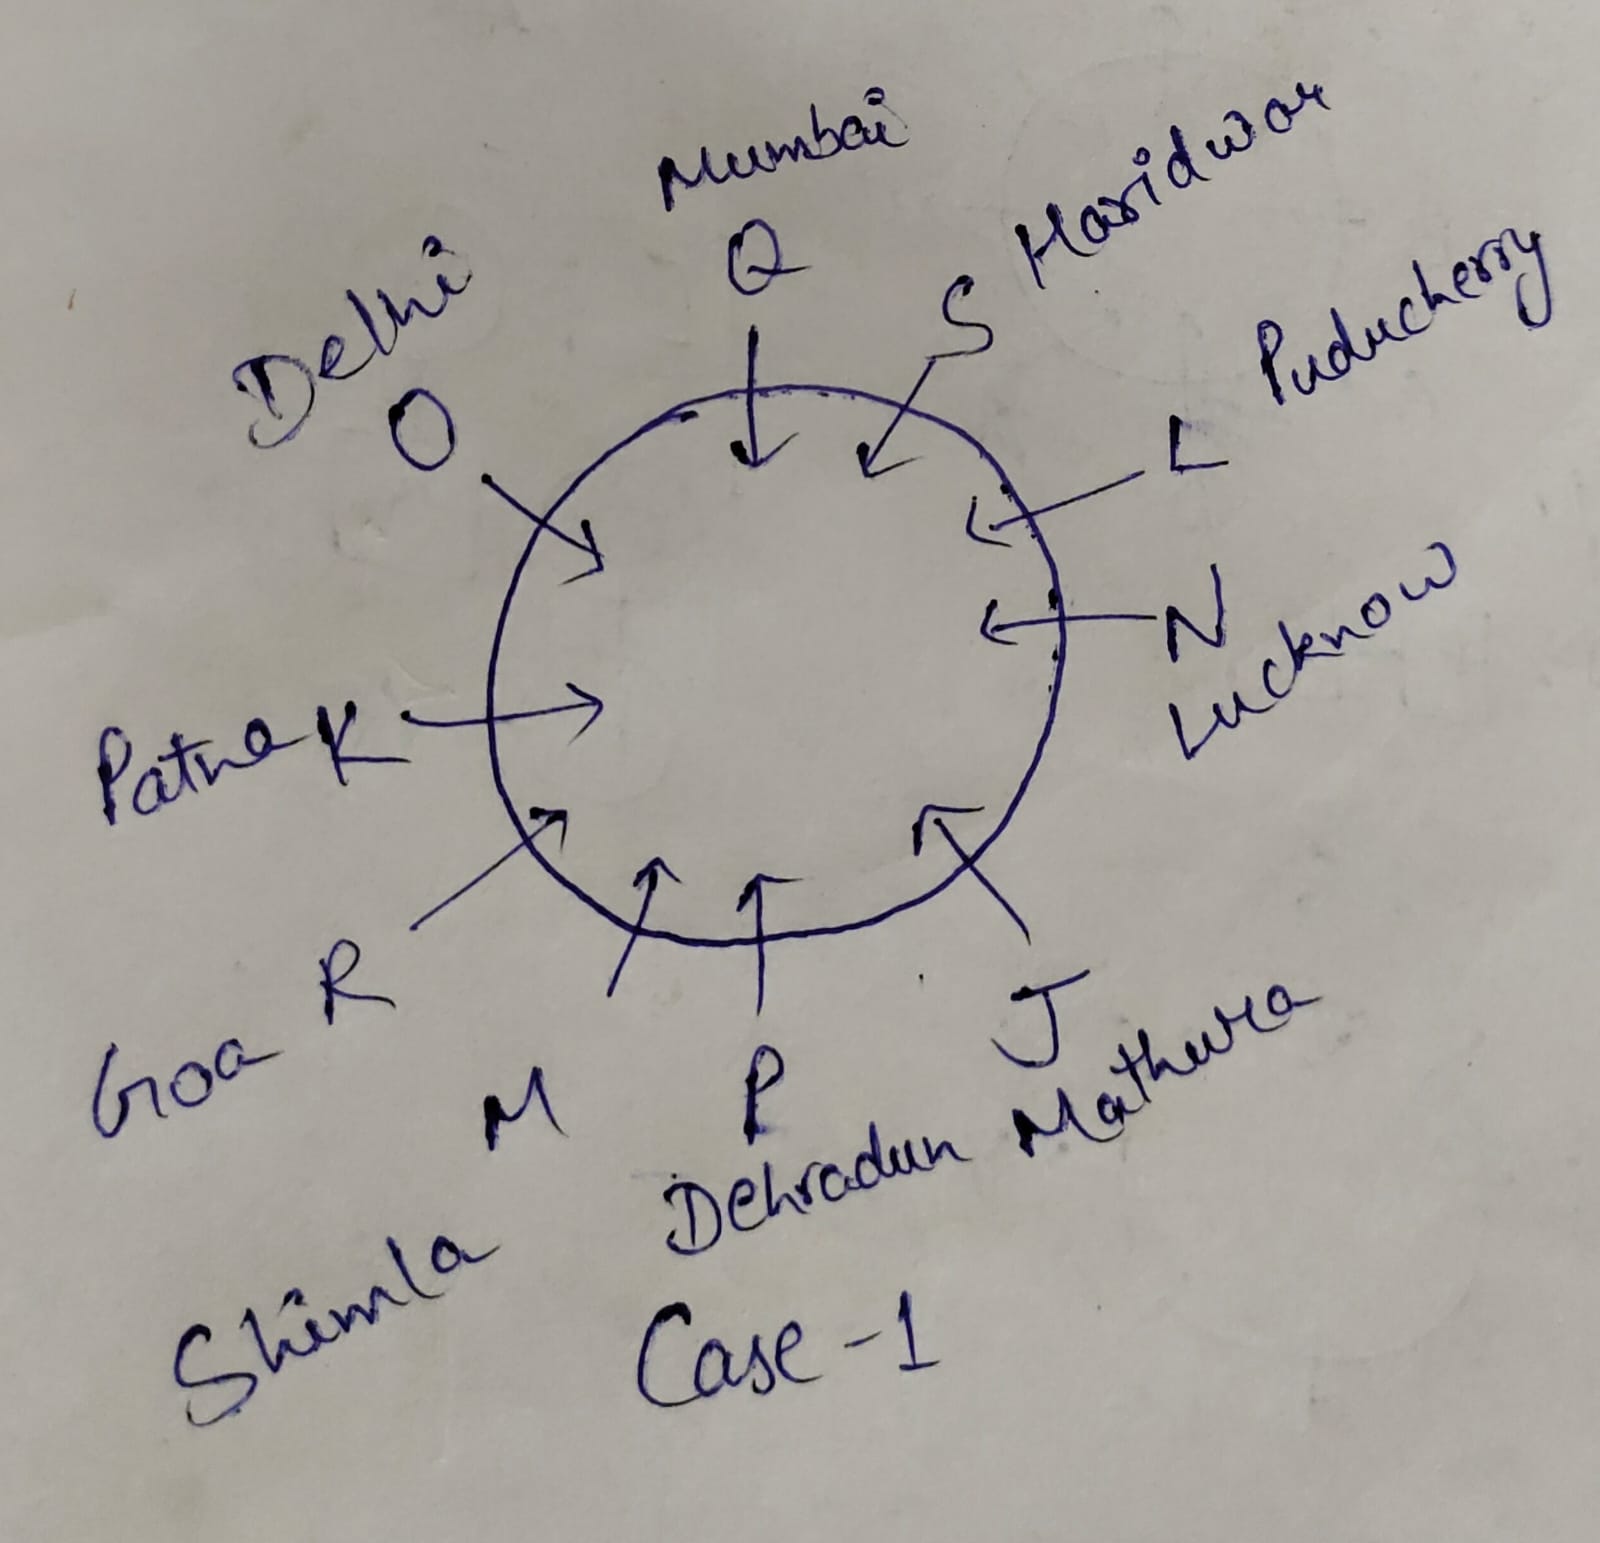 Mumbai
Q
Haridwar
S
Delhi
O
Puducherry
L
N
Lucknow
Patna K
R
Goa
J
Mathura
M
P
Dehradun
Shimla
Case-1